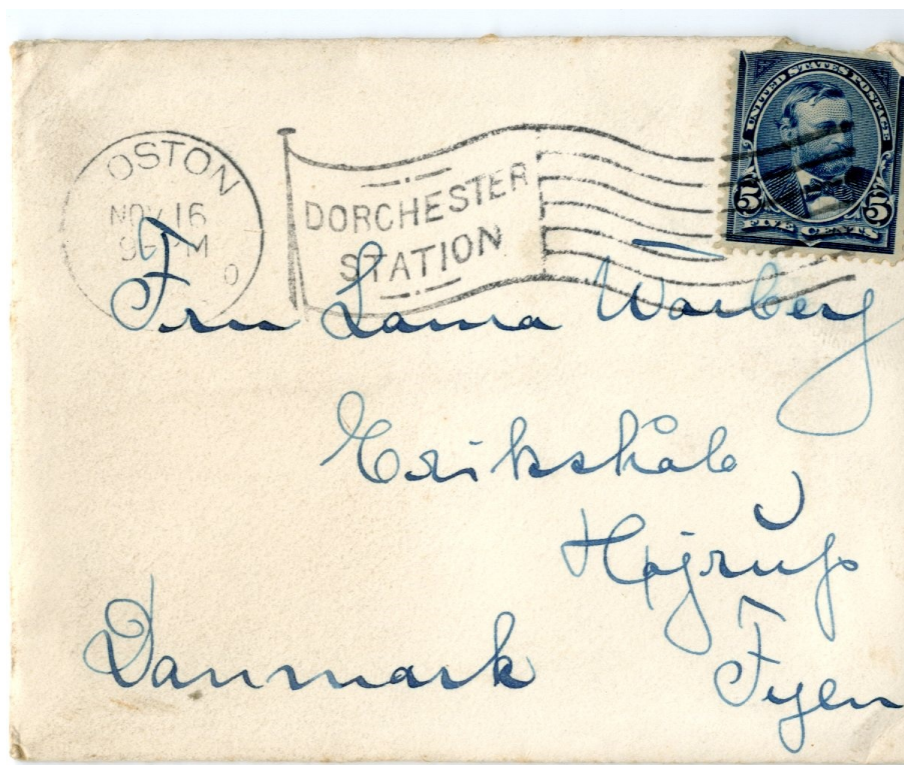 OSTON
NOV 16
DORCHESTER
STATION
UNITED STATES POSTAGE
5 5
FIVE CENTS
Fru Laura Warberg
Erikshåb
Højrup
Fyen
Danmark